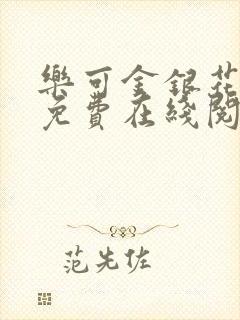 樂可金銀花
免費在綫閱
范先佐